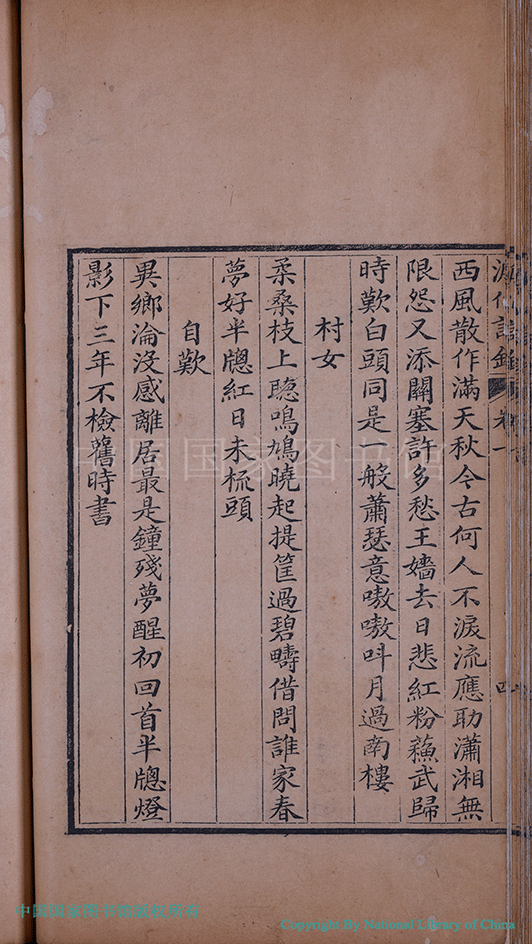 西風散作滿天秋今古何人不淚流應助瀟湘無
限怨又添關塞許多愁王嬙去日悲紅粉蘇武歸
時歎白頭同是一般蕭瑟意嗷嗷呌月過南樓
村女
柔桑枝上聽鳴鳩曉起提筐過碧疇借問誰家春
夢好半牕紅日未梳頭
自歎
異鄉淪沒感離居最是鐘殘夢醒初回首半牕燈
影下三年不檢舊時書
卷一
四
中国国家图书馆
中国国家图书馆版权所有
Copyright By National Library of China